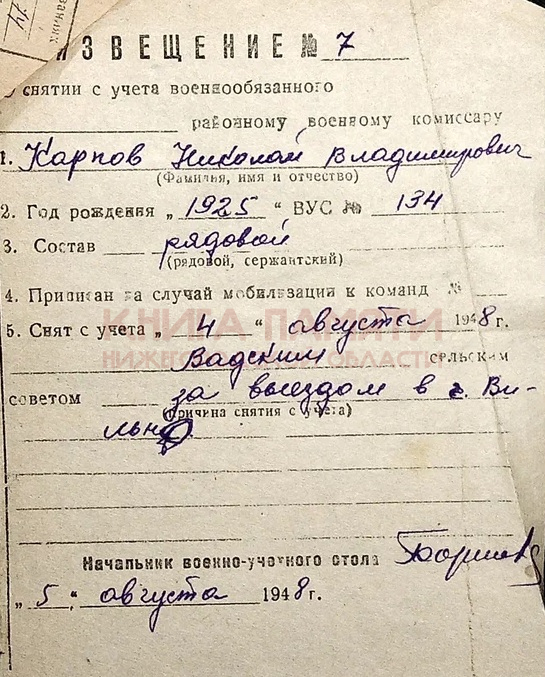 ИЗВЕЩЕНИЕ № 7
О снятии с учета военнообязанного
районному военному комиссару
1. Карпов Николай Владимирович
(Фамилия, имя и отчество)
2. Год рождения „ 1925 “ ВУС № 134
3. Состав рядовой
(рядовой, сержантский)
4. Приписан на случай мобилизации к команд №
5. Снят с учета „ 4 “ августа 1948 г.
КНИГА ПАМЯТИ
НИЖЕГОРОДСКОЙ ОБЛАСТИ
Вадским сельским
советом за выездом в г. Ви-
(причина снятия с учета)
льно.
Начальник военно-учетного стола
„ 5 “ августа 1948 г.